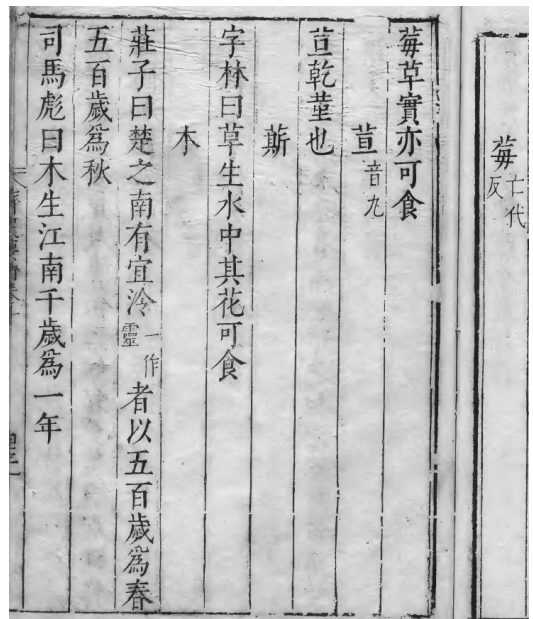 莓亡代反
莓草實亦可食
荁音九
荁乾菫也
蔪
字林曰草生水中其花可食
木
莊子曰楚之南有宜泠一作靈者以五百歲爲春
五百歲爲秋
司馬彪曰木生江南千歲爲一年